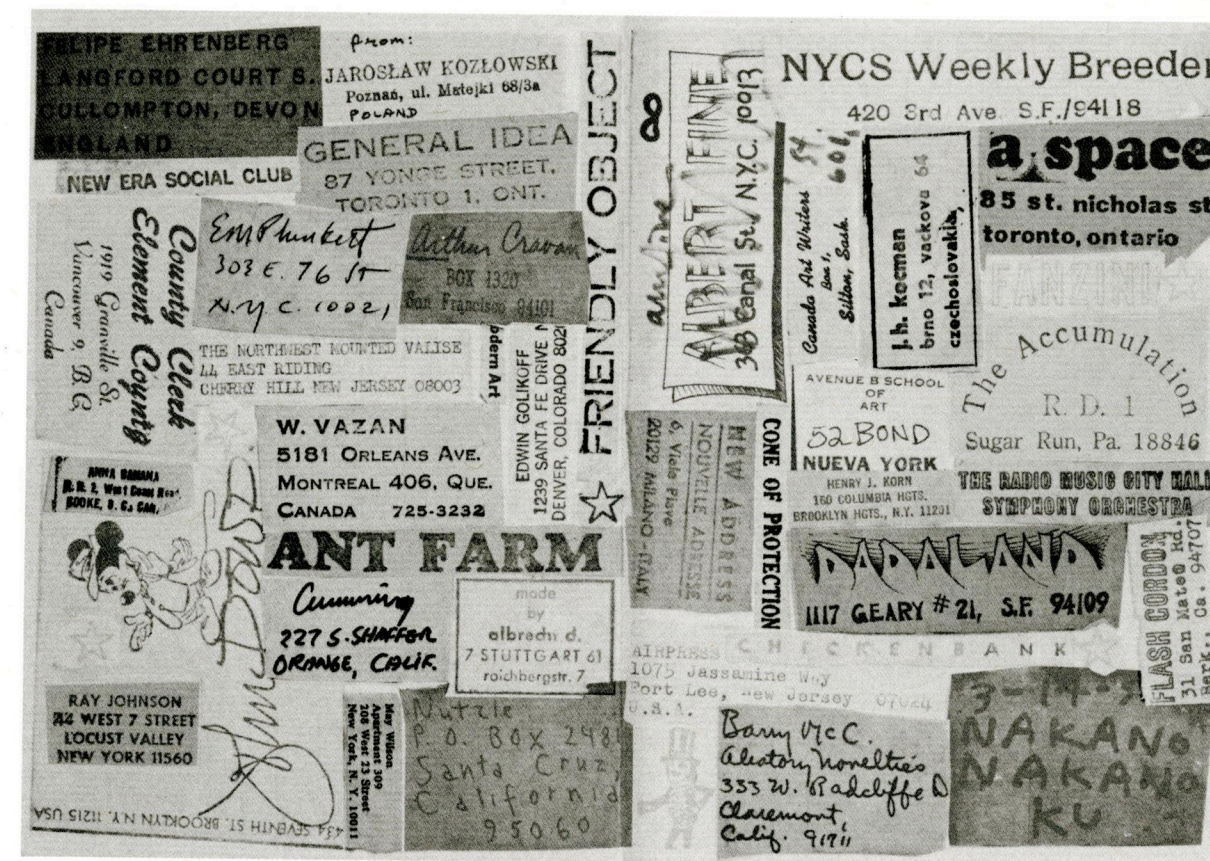 FELIPE EHRENBERG
LANGFORD COURT S.
CULLOMPTON, DEVON
ENGLAND
from:
JAROSŁAW KOZŁOWSKI
Poznań, ul. Matejki 68/3a
POLAND
NEW ERA SOCIAL CLUB
GENERAL IDEA
87 YONGE STREET.
TORONTO 1. ONT.
County Clerk
Element County
1919 Granville St.
Vancouver 9, B.C.
Canada
EM Plunkett
303 E. 76 St
N.Y C. 10021
Arthur Cravan
BOX 4320
San Francisco 94101
THE NORTHWEST MOUNTED VALISE
44 EAST RIDING
CHERRY HILL NEW JERSEY 08003
odern Art
EDWIN GOLIKOFF
1239 SANTA FE DRIVE
DENVER, COLORADO 802
FRIENDLY OBJECT
W. VAZAN
5181 ORLEANS AVE.
MONTREAL 406, QUE.
CANADA 725-3232
ANNA BANANA
R.R. 2, West Coast Road,
SOOKE, B.C., CAN.
ANT FARM
Cumming
227 S. SHAFFER
ORANGE, CALIF.
made
by
albrecht d.
7 STUTTGART 61
reichbergstr. 7
RAY JOHNSON
44 WEST 7 STREET
LOCUST VALLEY
NEW YORK 11560
434 SEVENTH ST. BROOKLYN N.Y. 11215 USA
May Wilson
Apartment 309
208 West 23 Street
New York, N. Y. 10011
Nutzle
P.O. BOX 248
Santa Cruz,
California
95060
8
ALBERT FINE
343 Canal St. N.Y.C. 10013
NYCS Weekly Breeder
420 3rd Ave. S.F./94118
Canada Art Writers
Box 1,
Silton, Sask.
j. h. kocman
brno 12, vackova 64
czechoslovakia,
a space
85 st. nicholas st
toronto, ontario
FANZINI
The Accumulation
R. D. 1
Sugar Run, Pa. 18846
AVENUE B SCHOOL
OF
ART
52 BOND
NUEVA YORK
HENRY J. KORN
160 COLUMBIA HGTS.
BROOKLYN HGTS., N.Y. 11201
THE RADIO MUSIC CITY HALL
SYMPHONY ORCHESTRA
NEW ADDRESS
NOUVELLE ADRESSE
6, Viale Piave
20129 MILANO - ITALY
CONE OF PROTECTION
DADALAND
1117 GEARY # 21, S.F. 94109
FLASH GORDON
31 San Mateo Rd.
Berk., Ca. 94707
CHICKEN BANK
AIRPRESS
1075 Jassamine Way
Fort Lee, New Jersey 07024
U.S.A.
Barry McC.
Aleatory Novelties
333 W. Radcliffe D
Claremont,
Calif. 91711
3-14-3
NAKANO
NAKANO
KU